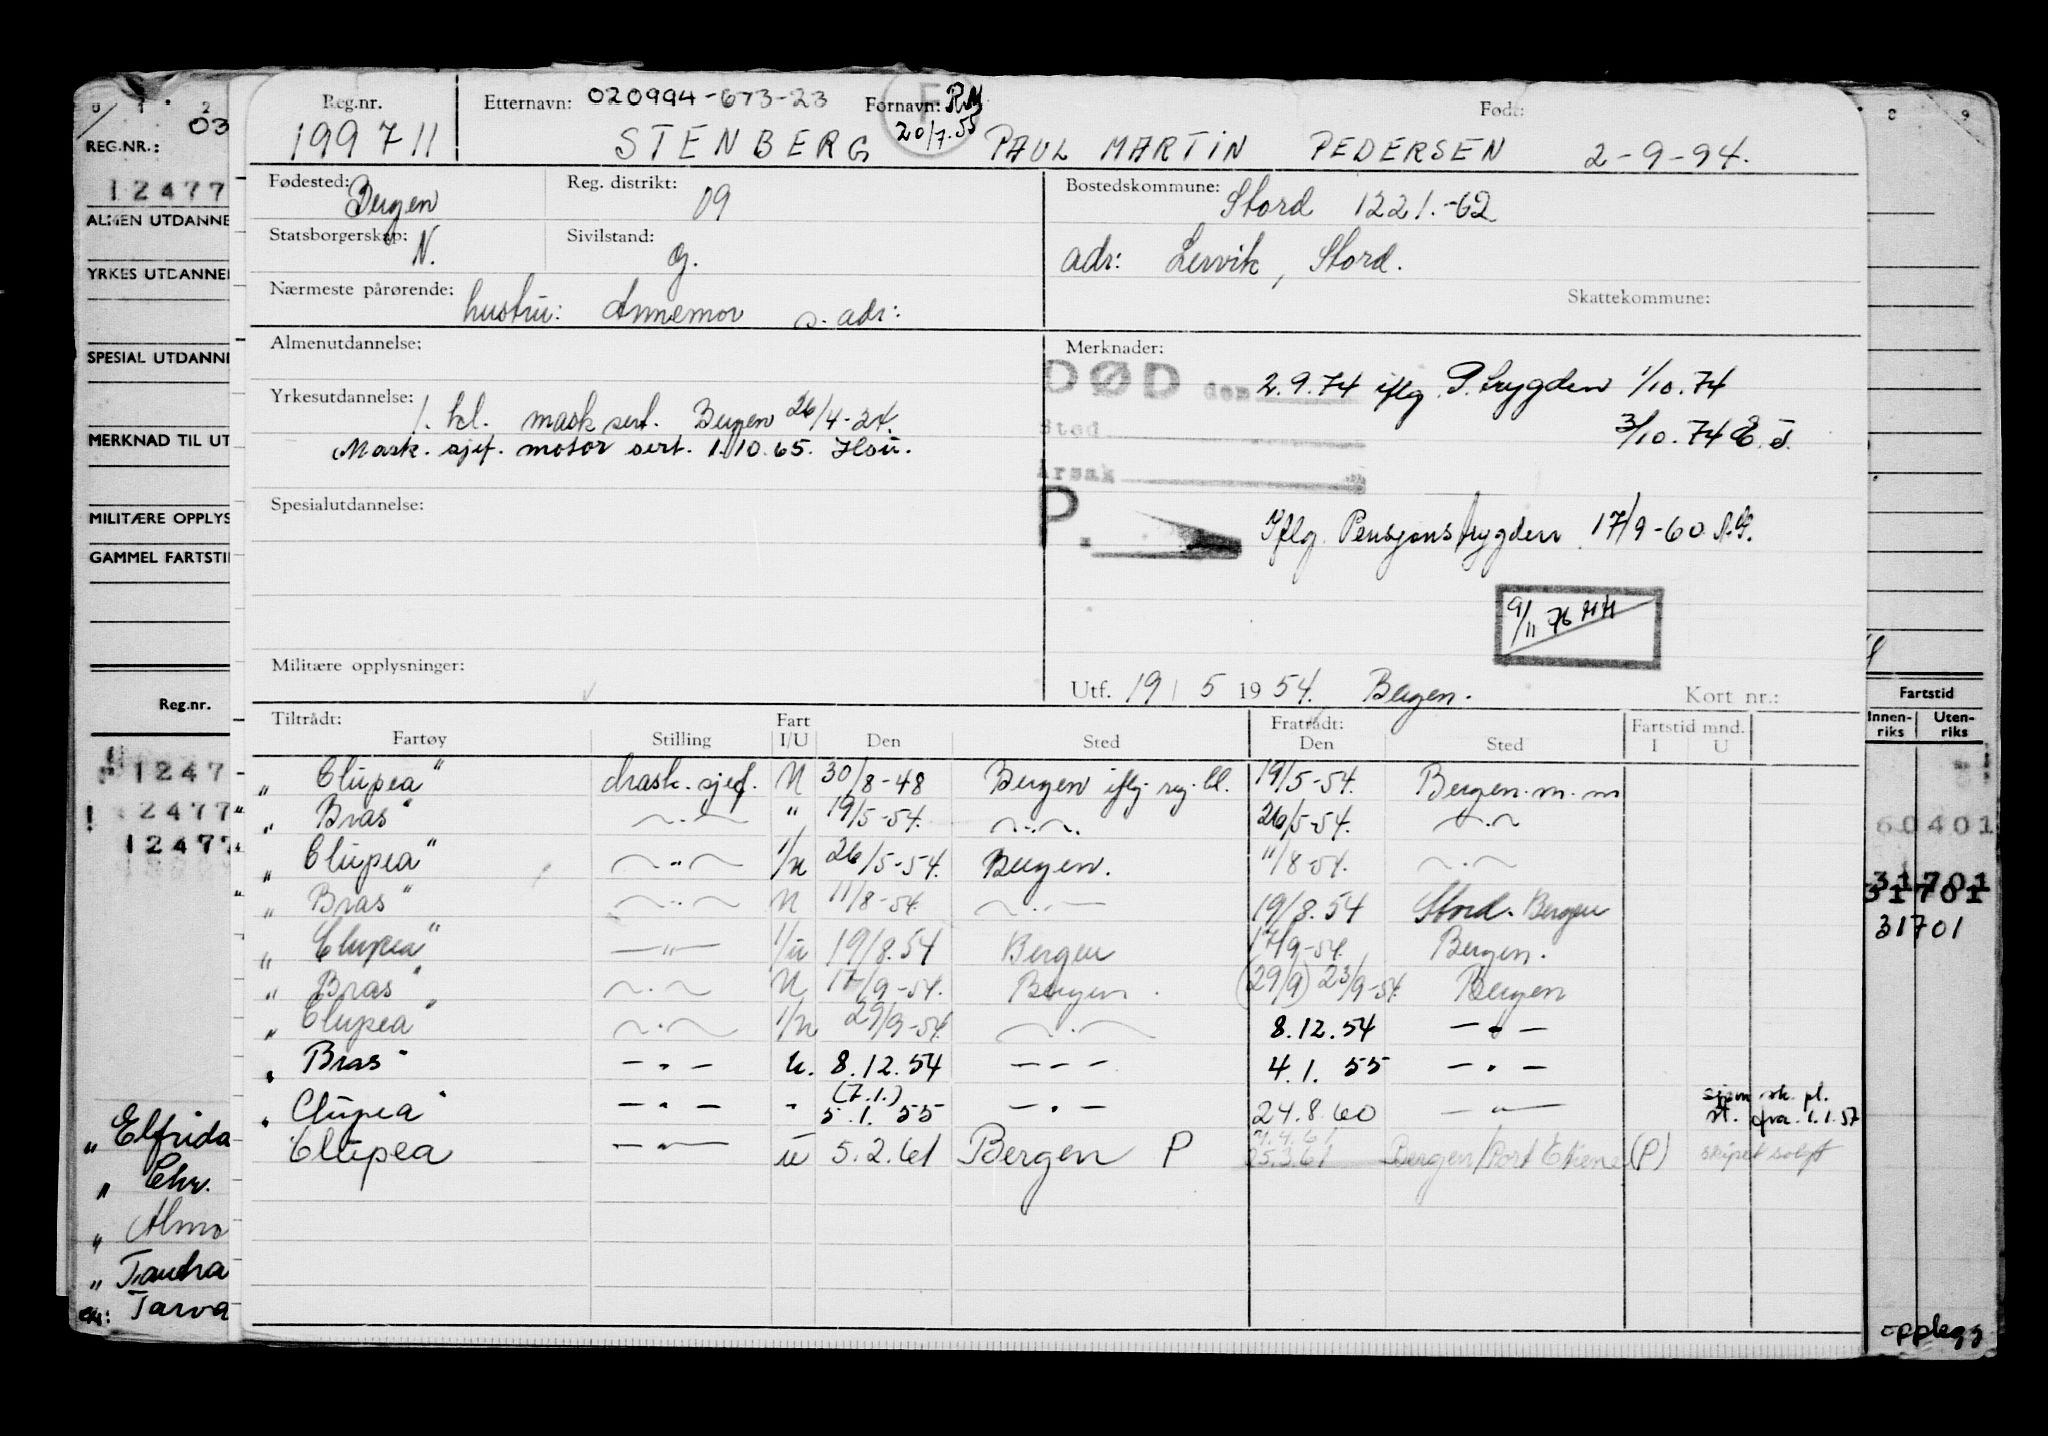 Reg.nr. Etternavn: 020994-673-23 Fornavn: RM Født:
20/7.55
199711 STENBERG PAUL MARTIN PEDERSEN 2-9-94.
Fødested: Bergen Reg. distrikt: 09 Bostedskommune: Stord 1221.-62
Statsborgerskap: N. Sivilstand: g. adr: Lervik, Stord.
Nærmeste pårørende: hustru: Annemor s. adr: Skattekommune:
Almenutdannelse: Merknader:
DØD den 2.9.74 iflg. P.trygden 1/10.74
Yrkesutdannelse: 1. kl. mask sert. Bergen 26/4-24. 3/10.74
Mask. sjef. motor sert. 1.10.65. Sted
Årsak
Spesialutdannelse: P. Iflg Pensjonstrygden 17/9-60
9/11 76 HH
Militære opplysninger: Utf. 19/5 1954. Bergen. Kort nr.:
Tiltrådt: Fart Fratrådt: Fartstid mnd.
Fartøy Stilling I/U Den Sted Den Sted I U
" Clupea" Mask. sjef. U 30/8-48 Bergen iflg. reg. bl. 19/5-54. Bergen. m. m
" Bras" — " — " 19/5-54. — " — 26/5-54. — " —
" Clupea" — " — I/U 26/5-54. Bergen. 11/8-54. — " —
" Bras" — " — U 11/8-54. — " — 19/8.54 Stord. Bergen
" Clupea" — " — I/U 19/8.54 Bergen 17/9-54. Bergen.
" Bras" — " — U 17/9-54. Bergen. (29/9) 23/9-54. Bergen
" Clupea" — " — I/U 29/9-54. — " — 8.12.54 — " —
" Bras" — " — U. 8.12.54 — " — 4.1.55 — " —
(7.1.)
" Clupea" — " — " 5.1.55 — " — 24.8.60 — " — fra. 1.1.57
Clupea — " — U 5.2.61 Bergen P 4.4.61 25.3.61 Bergen/Port Etiene (P) skipet solgt
0 1 2
03
REG.NR.:
12477
ALMEN UTDANNE
YRKES UTDANNE
SPESIAL UTDANNE
MERKNAD TIL UT
MILITÆRE OPPLYS
GAMMEL FARTSTI
Reg.nr.
1247
12477
12477
" Elfrida
" Chr.
" Alma
" Tandra
Tarva
8 9
Fartstid
Innen-riks Uten-riks
60401
31701
31701
opplegg